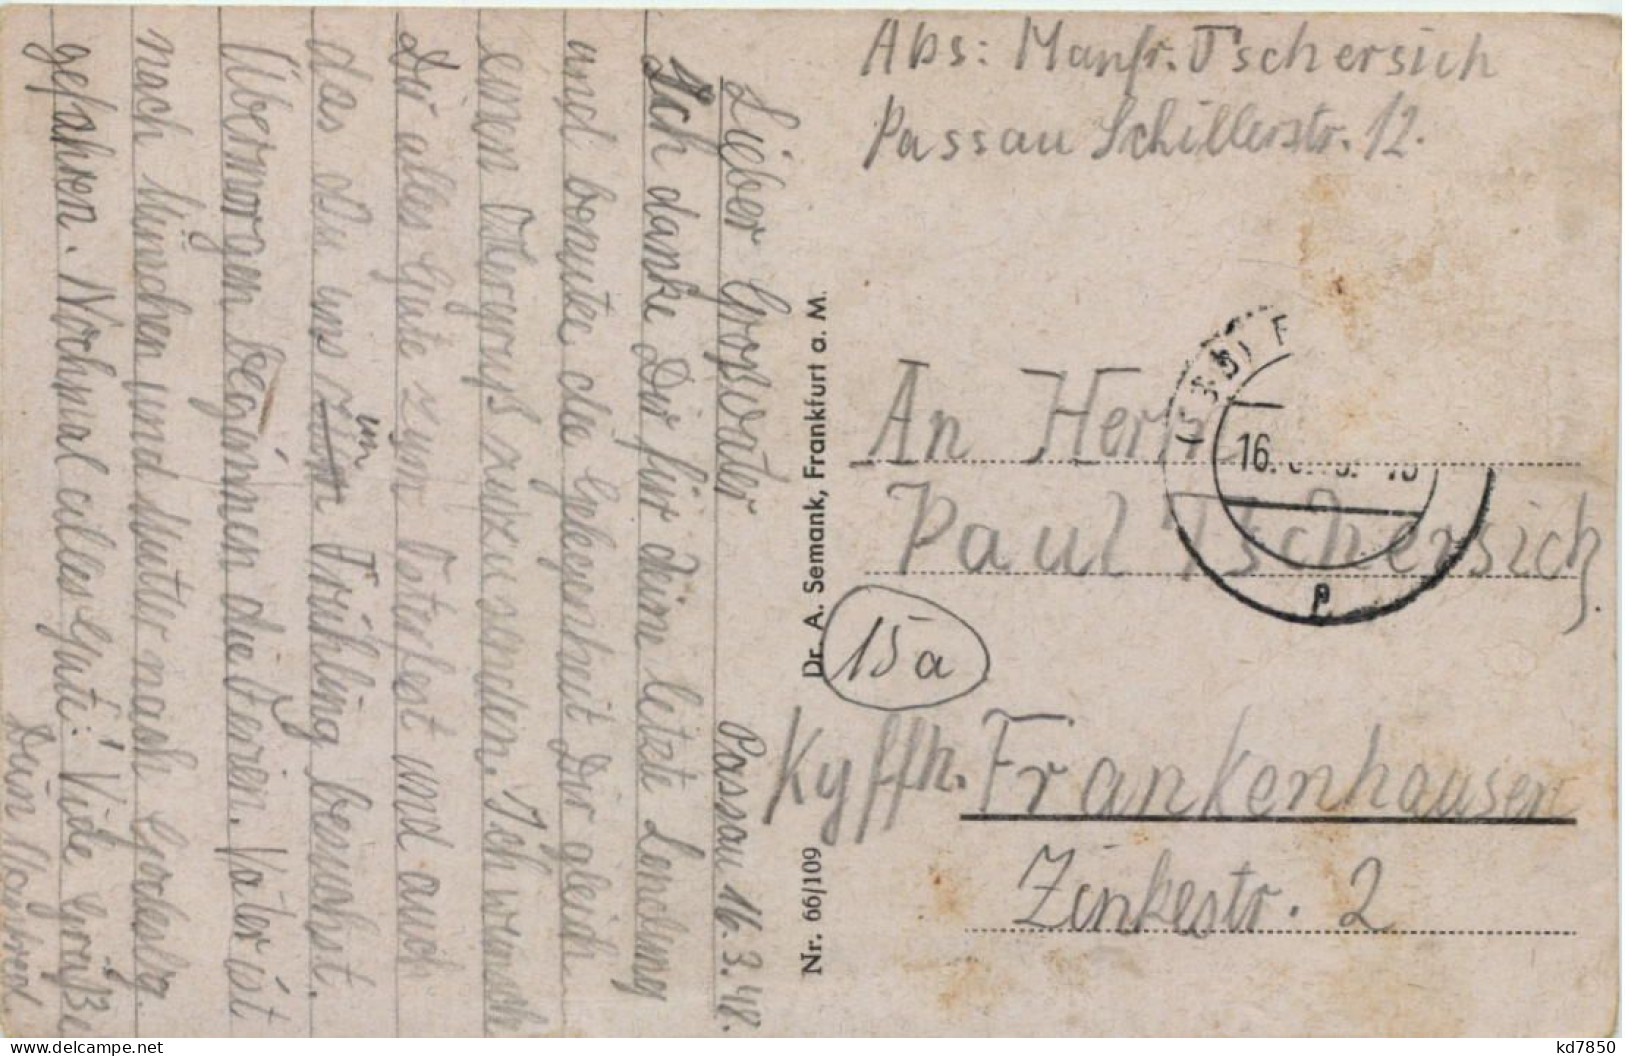 Abs: Manfr. Tschersich
Passau Schillerstr. 12.
Lieber Großvater Passau 16.3.48.
Ich danke Dir für deine letzte Sendung
und benutze die Gelegenheit Dir gleich
einen Ostergruß zurzusenden. Ich wünsch
Dir alles Gute zum Osterfest und auch
das Du uns im Frühling besuchst.
Übermorgen beginnen die Ferien. Vater ist
nach München und Mutter nach
gefahren. Nochmal alles Gute! Viele Grüße
Dein Manfred.
Dr. A. Semank, Frankfurt a. M.
Nr. 66/109
16.
An Herrn
Paul Tschersich
15a
Kyffh. Frankenhausen
Zinkestr. 2
kd7850